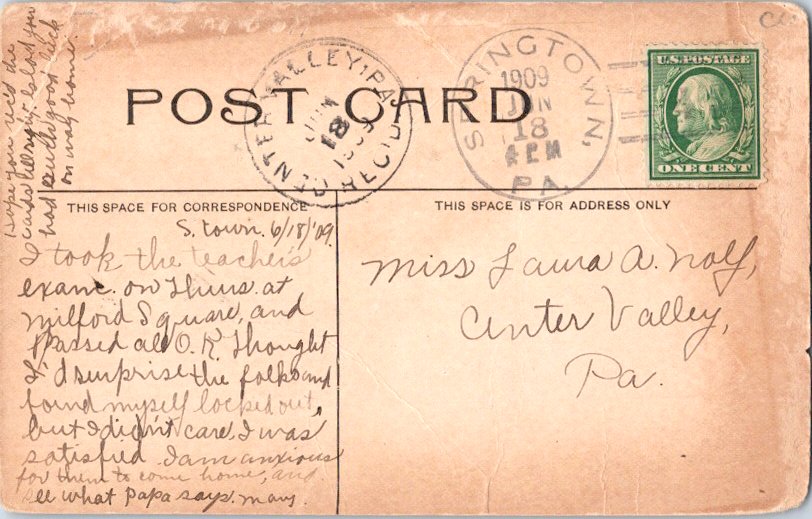 POST CARD
CENTER VALLEY, PA.
JUN
18
1909
REC'D.
SPRINGTOWN,
1909
JUN
18
4 PM
PA.
U.S. POSTAGE
ONE CENT
THIS SPACE FOR CORRESPONDENCE
THIS SPACE IS FOR ADDRESS ONLY
S. town. 6/18/'09.
I took the teacher's
exam. on Thurs. at
Milford Square, and
passed all O.K. Thought
I'd surprise the folks and
found myself locked out,
but I didn't care, I was
satisfied. I am anxious
for them to come home, and
see what Papa says. Mary.
Hope you rec'd the
card all right
had such good luck
on way home.
Miss Laura A. Nolf,
Center Valley,
Pa.